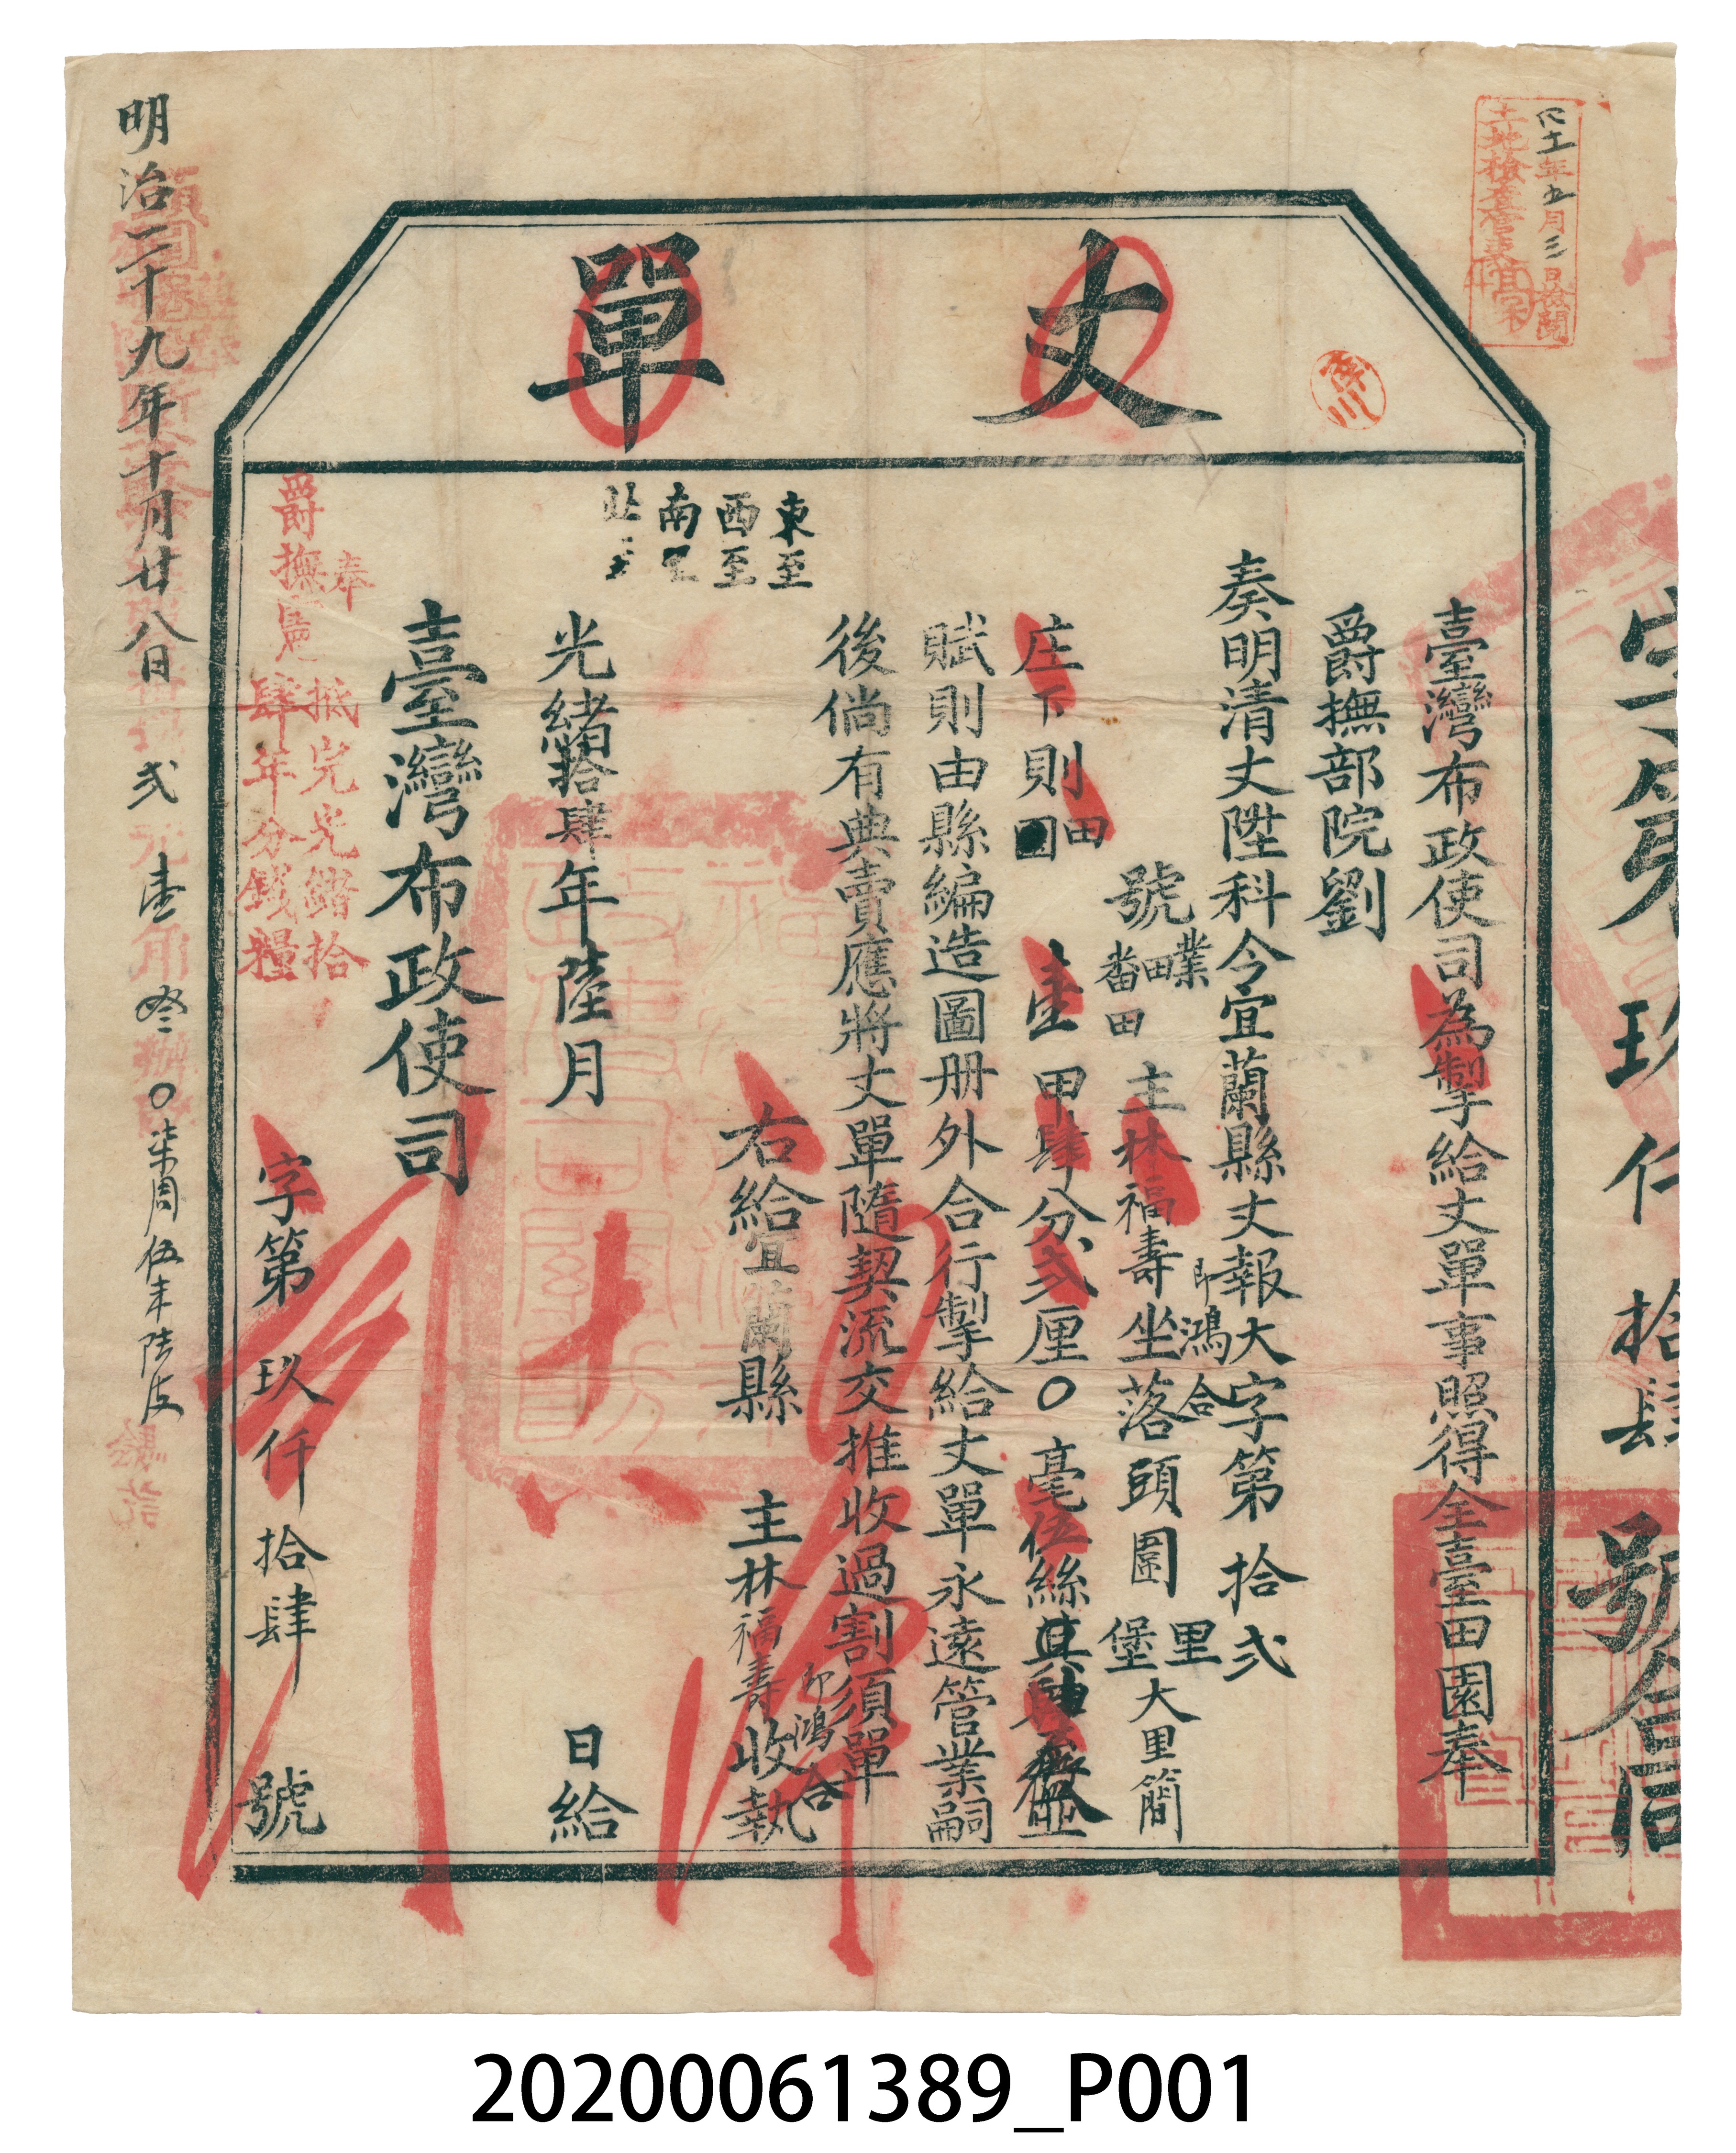 丈單
字第玖仟拾肆號合同
臺灣布政使司為掣給丈單事照得全臺田園奉
爵撫部院劉
奏明清丈陞科令宜蘭縣丈報大字第拾弍
號業田番田主林福壽即鴻合坐落頭圍里堡大里簡
庄下則田 壹甲肆分弍厘〇毫伍絲
賦則由縣編造圖册外合行掣給丈單永遠管業嗣
後倘有典賣應將丈單隨契流交推收過割須單
右給宜蘭縣 主林福壽即鴻合收執
東至
西至
南至
北至
光緒拾肆年陸月 日給
臺灣布政使司
奉
爵撫憲
抵完光緒拾
肆年分錢糧
字第玖仟拾肆號
明治三十九年十月廿八日
弍元壹角
年五月三日
土地
20200061389_P001